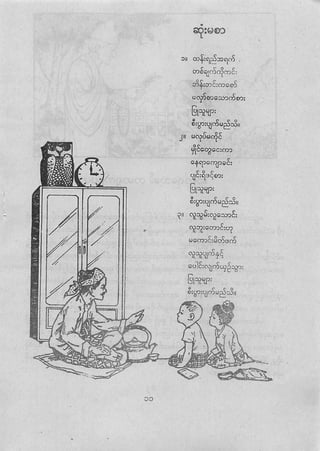 ဆုံးမစာ
၁။ ထန်းရည်အရက်
တစ်ချက်ကိုကင်း
ဘိန်းတင်းကစော်
လျှော်စာသောက်စား
ပြုသူများ
စီးပွားပျက်မည်သိ။
၂။ မလုပ်မကိုင်
မှိုင်တွေငေးကာ
နေရာကျောခင်း
ပျင်းရိဖင့်စား
ပြုသူများ
စီးပွားပျက်မည်သိ။
၃။ လူသွမ်းလူသောင်း
လူဘူးတောင်းဟု
မကောင်းမိတ်ဖက်
လူသူပျက်နှင့်
ပေါင်းလျက်ယှဉ်သွား
ပြုသူများ
စီးပွားပျက်မည်သိ။
၁၁